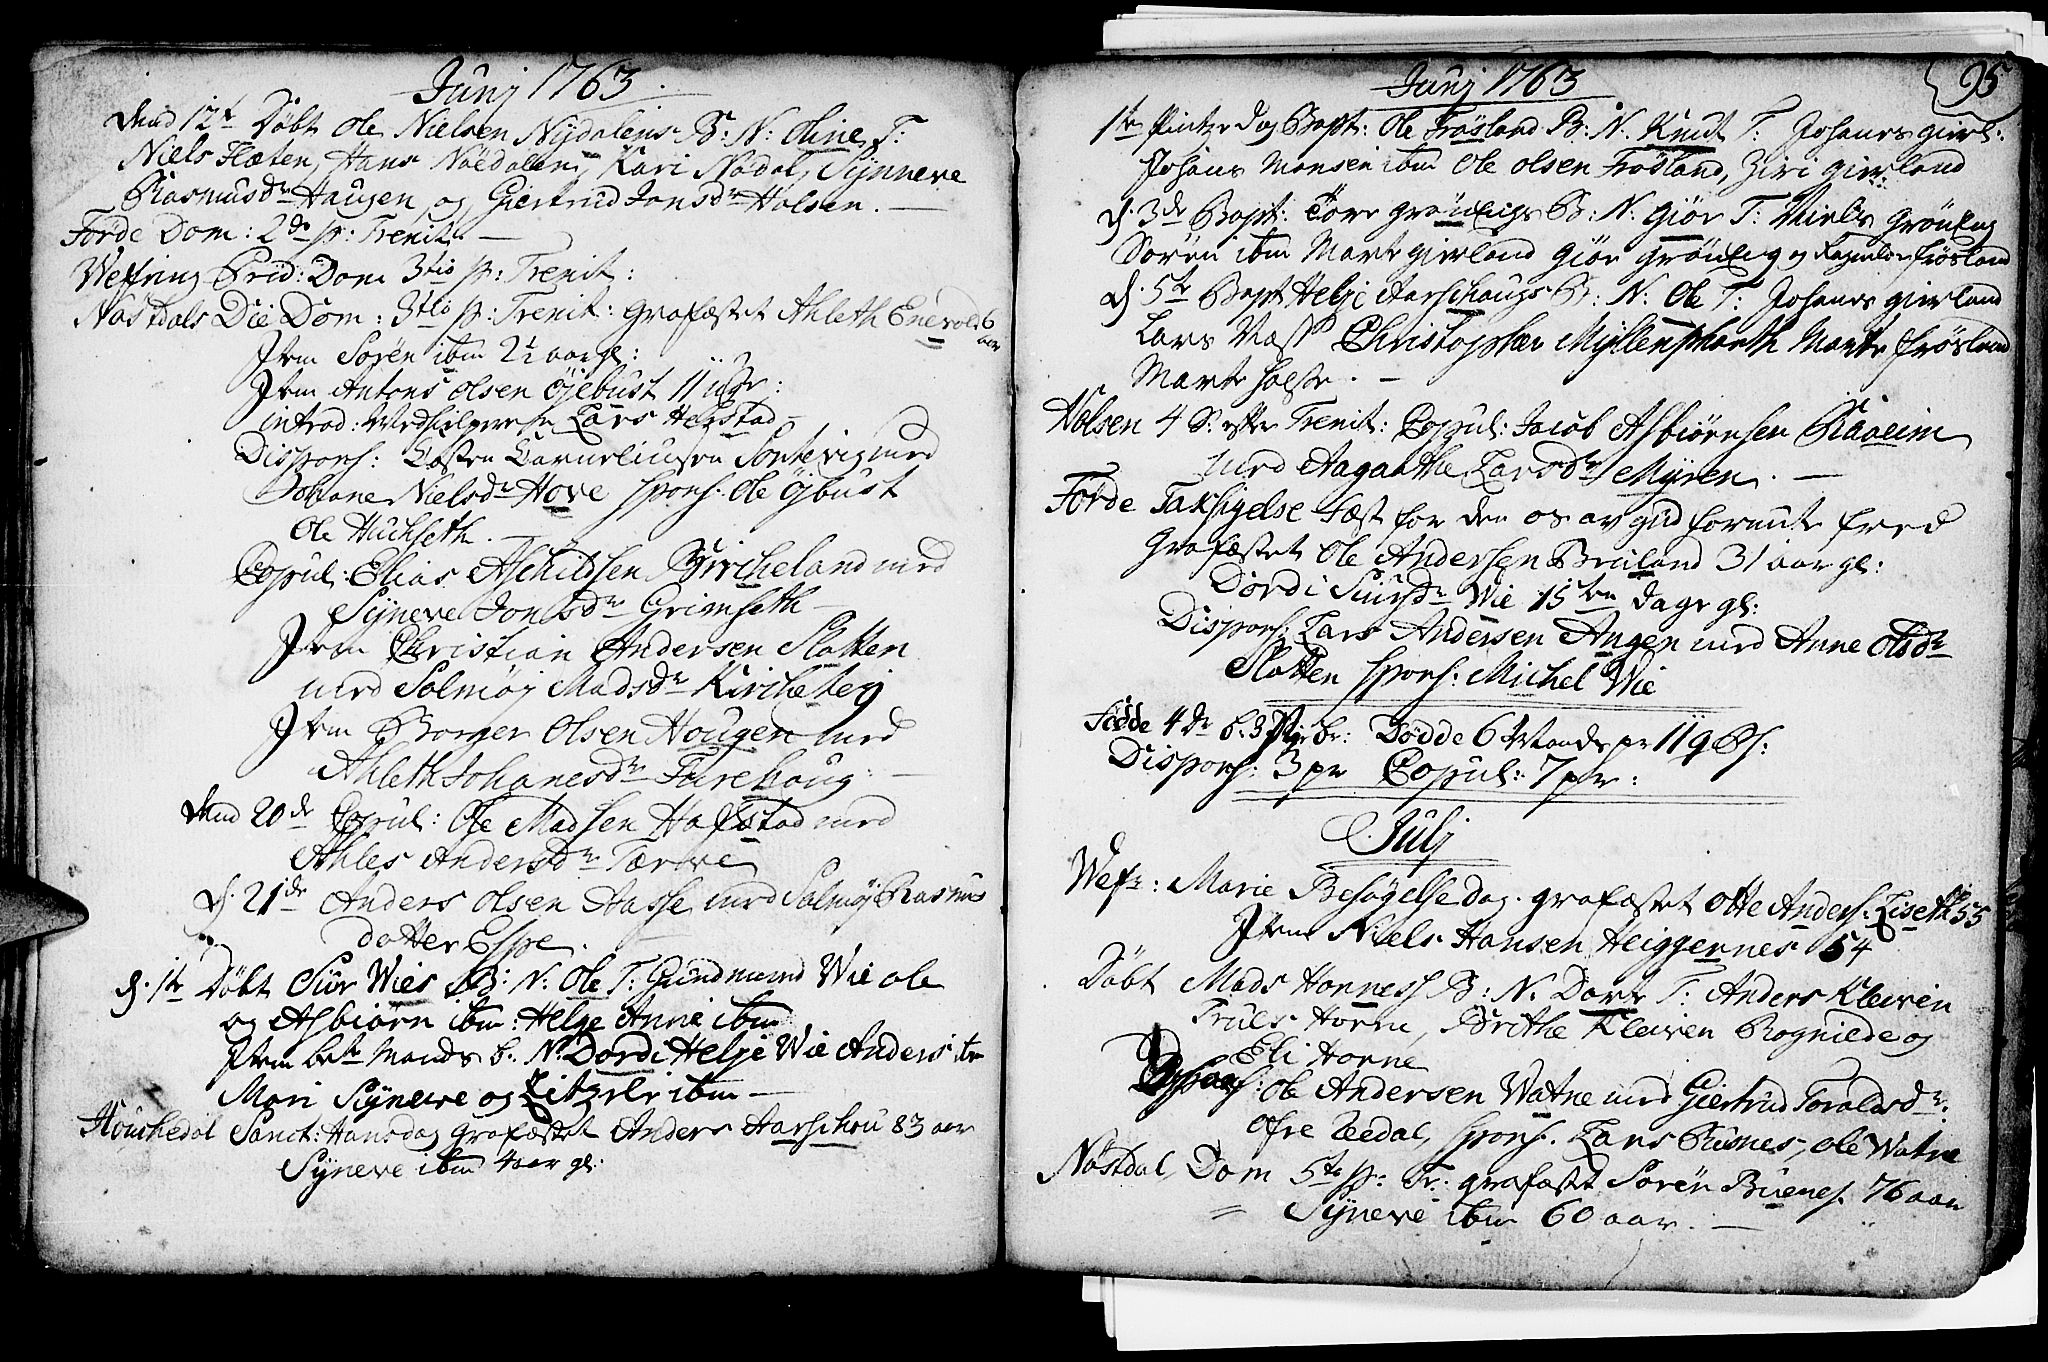 Junj 1763.
dend 12te Döbt Ole Nielsen Nijdalens B: N: Oline, T:
Niels Flæten, Hans Nöedalen, Kari Nödal, Synneve
Rasmusdr Haugen og Giertrud Jonsdr Holsen.
Förde Dom: 2de p: Trenit.
Wefring Prid: Dom 3tio p: Trenit:
Nöstdals Die Dom: 3tio p: Trenit: grafæstet Ahleth Enevold 6
aar
Item Sören ibm 2½ aar gl:
Item Antons Olsen Öjebust 11 uger:
introd: Medhielperen Lars Helstad
Dispons: Östen Cornelliusen Sontevig med
Johane Nielsdr Hove spons. Ole Öjbust
Ole Huchseth.
Copul: Elias Aschildsen Bircheland med
Syneve Jonsdr Grimseth
Item Christian Andersen Slotten
med Solmöj Madsdr Kircheteig
Item Borger Olsen Hougen med
Ahleth Johanesdr Furehoug.
dend 20de Copul: Ole Madsen Hafstad med
Ahles Andersdr Tærve
d. 21de Anders Olsen Aasse med Solmöj Rasmus
datter Espe.
d. 1te Döbt Siur Wies B: N: Ole T: Gundmund Wie Ole
og Asbiörn ibm: Helge Anne ibm
Item bete Mands b. N. Dordi Helje Wie Anders ibm
Mari Syneve og Litzele ibm
Houchedal Sanct: Hansdag grafæstet Anders Aarschou 83 aar
Syneve ibm 4 aar gl:
Junj 1763
95
1te Pintzedag Bapt: Ole Frösland B: N. Knut T: Johanes gierl:
Johans Monsen ibm Ole Olsen Frösland, Ziri gierland
d. 3de Bapt: Tore Gröneligs B: N: Giör T: Niels Grönlig
Sören ibm Marte gierland Giör Grönlig og Ragnilde Frösland
d. 5te Bapt Helje Aarschougs B: N. Ole T: Johanes gierland
Lars Vass Christopher Myllenphorth Marte Frösland
Marte Holste.
Holsen 4 S: efter Trenit: Copul: Jacob Asbiörnsen Råaeim
med Aagaathe Larsdr Myren.
Förde Taksigelse Fæst for den os av gud forunte fred
Grafæstet Ole Andersen Bruland 31 aar gl:
Dordi Siursdr Wie 15ten dage gl:
Dispons: Lars Andersen Angen med Anne Olsdr
Slotten spons: Michel Wie
Födde 4 Dr b. 3 Pige b: Dödde 6 Mands pr 11 q Ps:
Dispons: 3 pr Copul: 7 pr:
Julj
Wefr: Marie Besögelse Dag. grafæstet Otte Anders: Liseth 55
Item Niels Hansen Heiggernes 54
Döbt Mads Hornes B: N. Dorte T: Anders Kleiven
Truls Horne, Brithe Kleiven Rognilde og
Eli Horne
Dispons: Ole Andersen Watne med Giertrud Toraldsdr.
Öfre Eedal, spons. Lars Rusnes, Ole Watne
Nöstdal Dom 5te p: Tr: grafæstet Sören Buenes. 76 aar
Syneve ibm 60 aar.